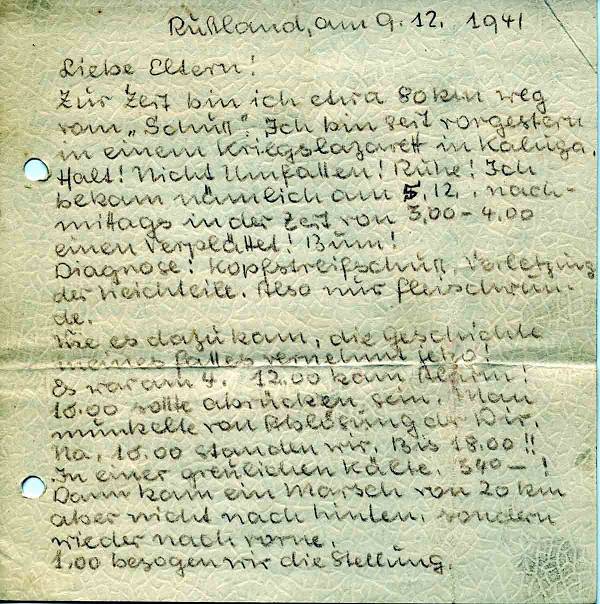 Rußland, am 9.12. 1941
Liebe Eltern!
Zur Zeit bin ich etwa 80 km weg
vom „Schuß“. Ich bin seit vorgestern
in einem Kriegslazarett in Kaluga.
Halt! Nicht Umfallen! Ruhe! Ich
bekam nämlich am 5.12., nach-
mittags in der Zeit von 3,00 – 4,00
einen verplättet! Bum!
Diagnose: Kopfstreifschuß, Verletzung
der Weichteile. Also nur Fleischwun-
de.
Wie es dazu kam, die Geschichte
meines Falles vernehmt jetzo!
Es war am 4. 12.00 kam Alarm!
16.00 sollte abrücken sein. Man
munkelte von Ablösung der Div.
Na, 16.00 standen wir. Bis 18.00!!
In einer greulichen Kälte. 340 – !
Dann kam ein Marsch von 20 km
aber nicht nach hinten, sondern
wieder nach vorne.
1,00 bezogen wir die Stellung.